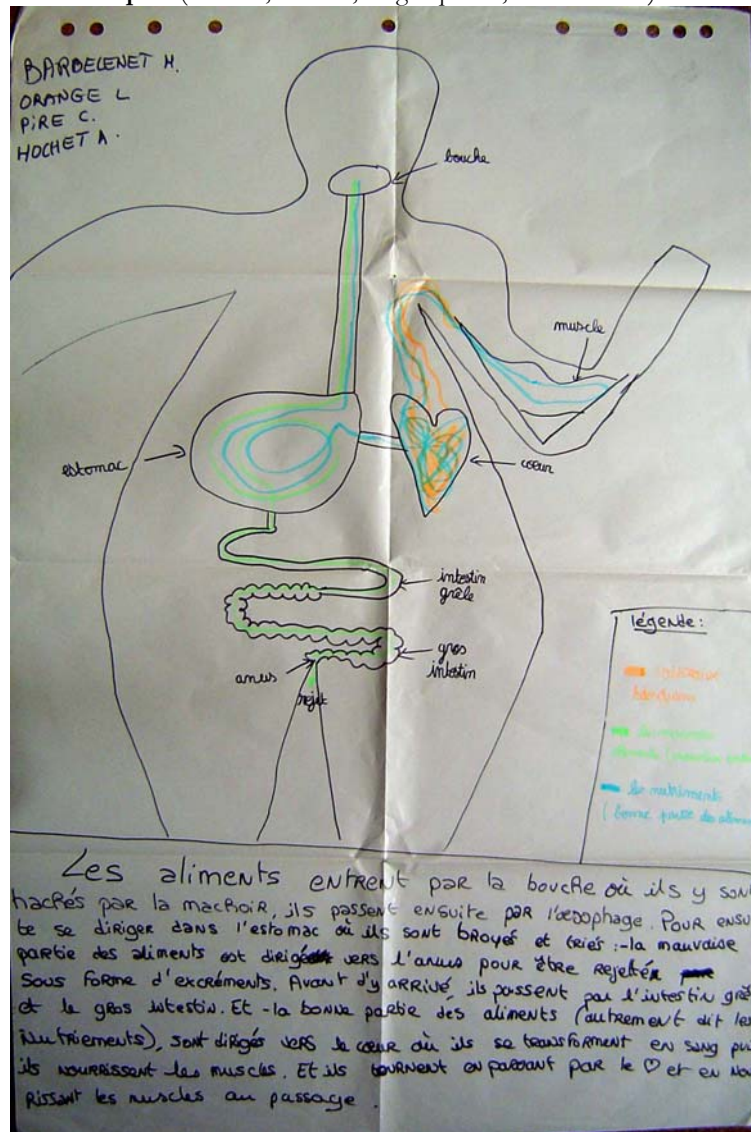 BARBELENET M.
ORANGE L
PiRE C.
HOCHET A.
bouche
muscle
estomac
coeur
intestin
grêle
gros
intestin
anus
rejet
légende:
les nutriments
( bonne partie des
Les aliments entrent par la bouche où ils y sont
hachés par la machoir, ils passent ensuite par l'œsophage. Pour ensui
te se diriger dans l'estomac où ils sont broyés et triés :-la mauvaise
partie des aliments est dirigée vers l'anus pour être rejetée
sous forme d'excréments. Avant d'y arrivé, ils passent par l'intestin grê
et le gros intestin. Et -la bonne partie des aliments (autrement dit les
Nutriements), sont dirigés vers le cœur où ils se transforment en sang pui
ils nourrissent les muscles. Et ils tournent en passant par le ♡ et en nou
rissant les muscles au passage.